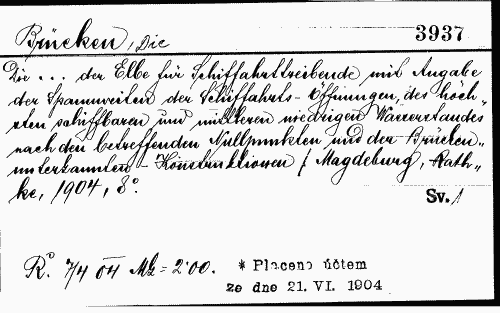 Brücken, Die
3937
Die ... der Elbe für Schiffahrttreibende mit Angabe
der Spannweiten der Schiffahrts-Öffnungen, des höch„
sten schiffbaren und mittleren niedrigen Wasserstandes
nach den betreffenden Nullpunkten und der Brücken„
unterkannten-Konstruktionen / Magdeburg, Rath„
ke, 1904, 8°.
Sv. 1
R° 7/4 04 Mk = 2·00.
* Placeno účtem
ze dne 21. VI. 1904